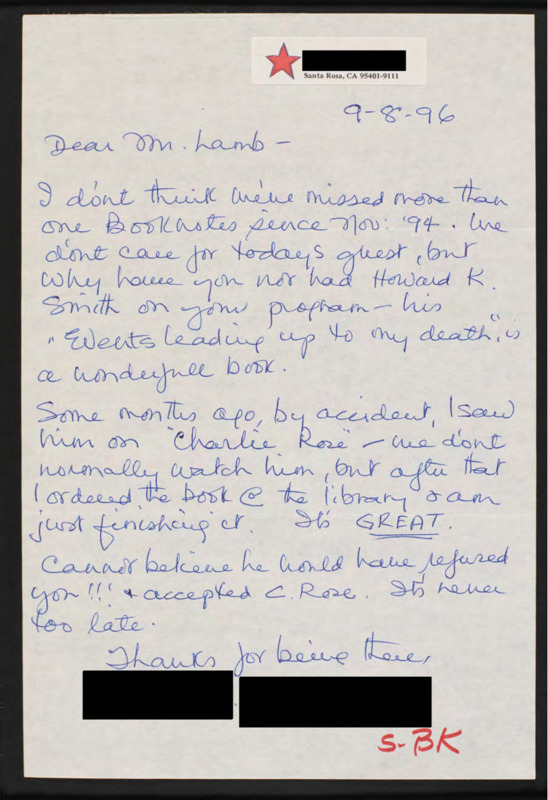 Santa Rosa, CA 95401-9111
9-8-96
Dear Mr. Lamb -
I don't think we've missed more than
one Booknotes since Nov: '94. We
don't care for todays guest, but
why have you not had Howard K.
Smith on your program - his
"Events leading up to my death", is
a wonderfull book.
Some months ago, by accident, I saw
him on "Charlie Rose" - we don't
normally watch him, but after that
I ordered the book @ the library & am
just finishing it. It's GREAT.
Cannot believe he would have refused
you!!! & accepted C. Rose. It's never
too late.
Thanks for being there,
S-BK